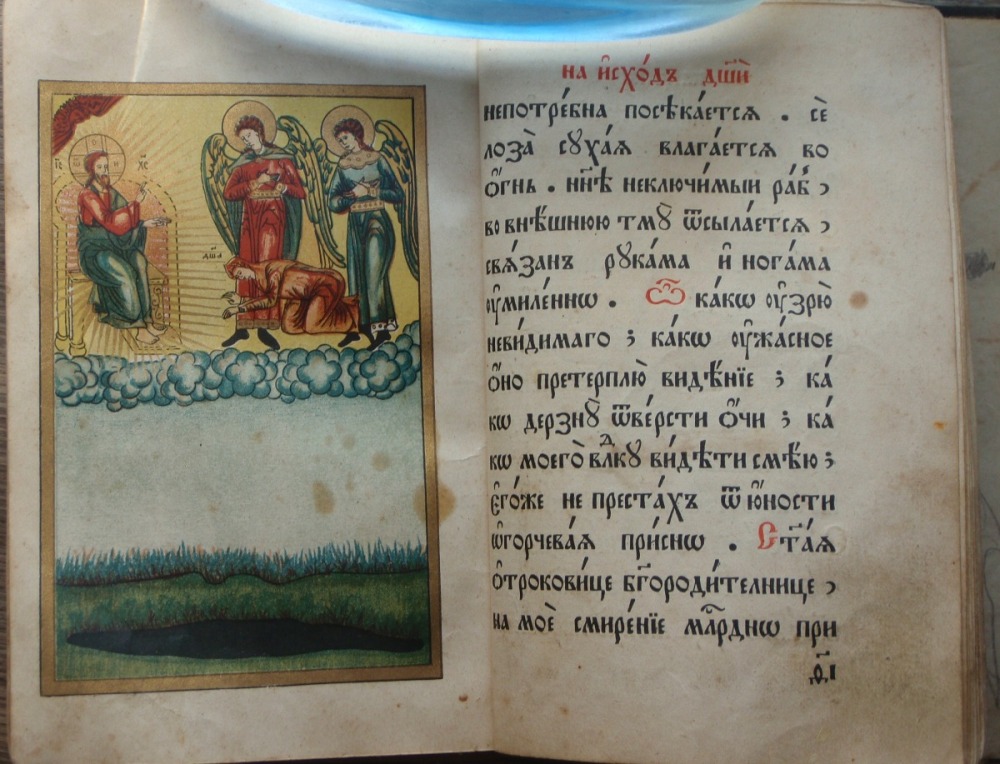 І҃С
Х҃С
ѽ
О
Н
дш҃а
на и҆схо́дъ дш҃ѝ
непотре́бна посѣка́етсѧ . сѐ
лоза̀ сꙋха́ѧ влага́етсѧ во
ѻ҆́гнь . нн҃ѣ неключи́мыи ра́бъ ,
во внѣ́шнюю тмꙋ̀ ѿсыла́етсѧ ,
свѧ́занъ рꙋка́ма и҆ нога́ма
ᲂу҆миле́ннѡ . Ѽ ка́кѡ ᲂу҆зрю̀
неви́димаго ; ка́кѡ ᲂу҆жа́сное
ѻ҆́но претерплю̀ видѣ́нїе ; ка́
кѡ дерзнꙋ̀ ѿве́рсти ѻ҆́чи ; ка́
кѡ моего̀ влⷣкꙋ ви́дѣти смѣ́ю ;
є҆го́же не преста́хъ ѿ ю҆́ности
ѡ҆горчева́ѧ при́снѡ . Ст҃а́ѧ
ѻ҆трокови́це бг҃ороди́телнице ,
на моѐ смире́нїе млⷭ҇рднѡ при
д҃і